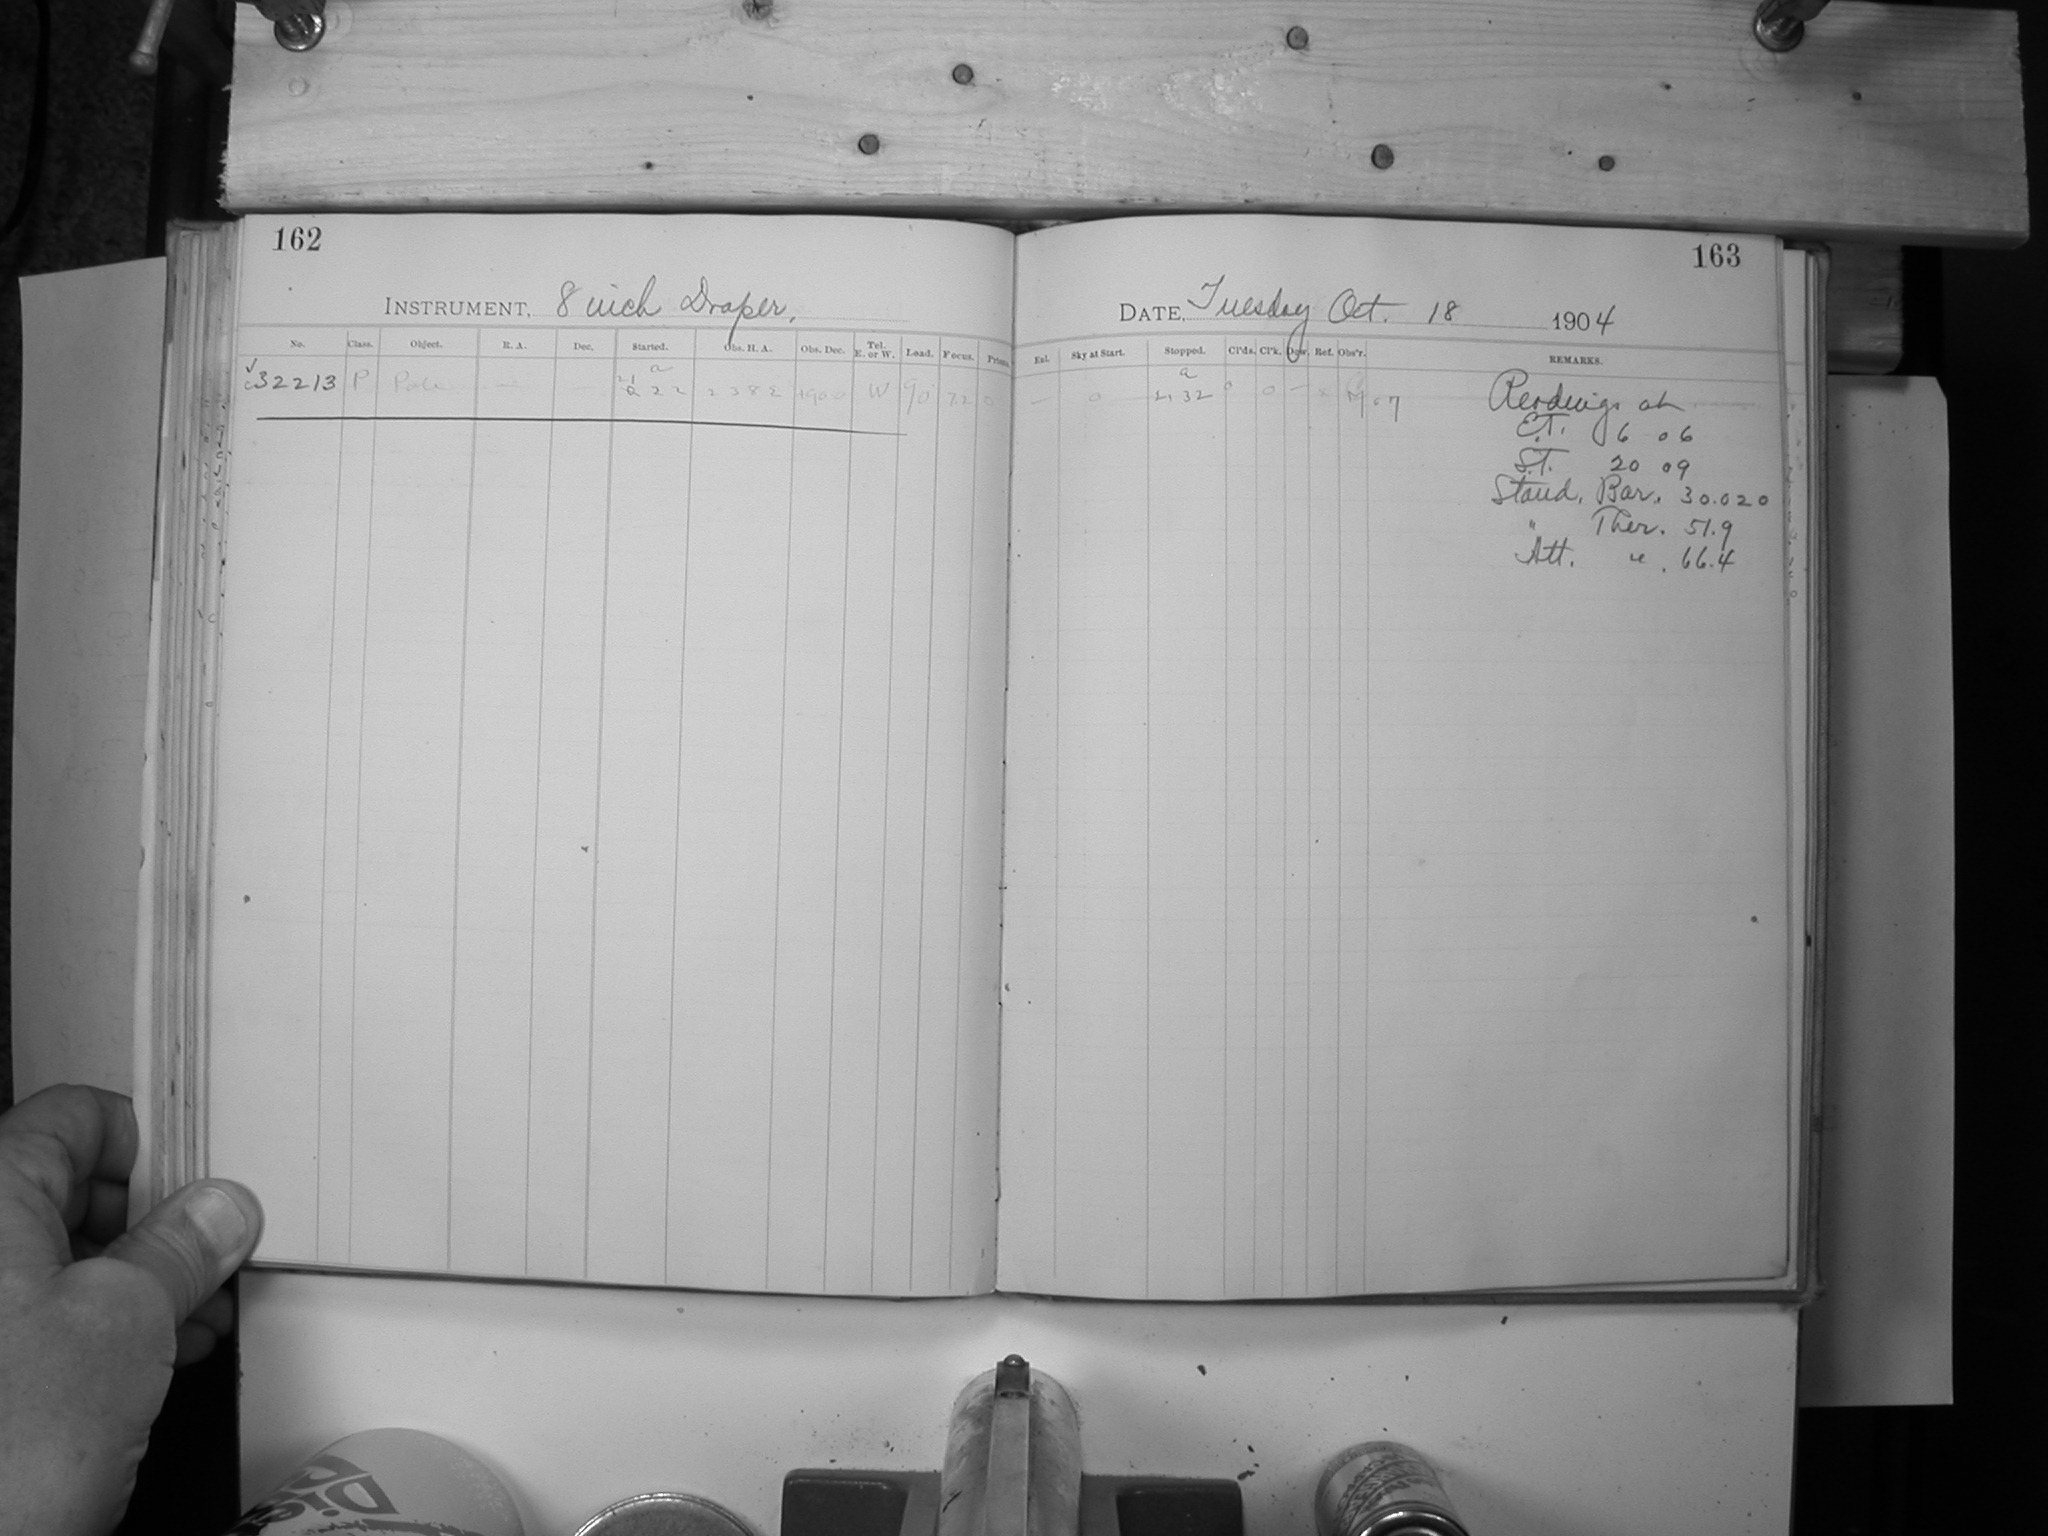 162
INSTRUMENT, 8 inch Draper,
No. Class. Object. R. A. Dec. Started. Obs. H. A. Obs. Dec. Tel. E. or W. Load. Focus. Prism
c32213 P Pole — — 21 22 a W 90 72 0
163
DATE, Tuesday Oct. 18 1904
Exl. Sky at Start. Stopped. Cl'ds. Cl'k. Dew. Ref. Obs'r. REMARKS.
— 0 21 32 a 0 0 — x M 07
Readings at
E.T. 6 06
S.T. 20 09
Stand. Bar. 30.020
" Ther. 51.9
Att. " 66.4
Die